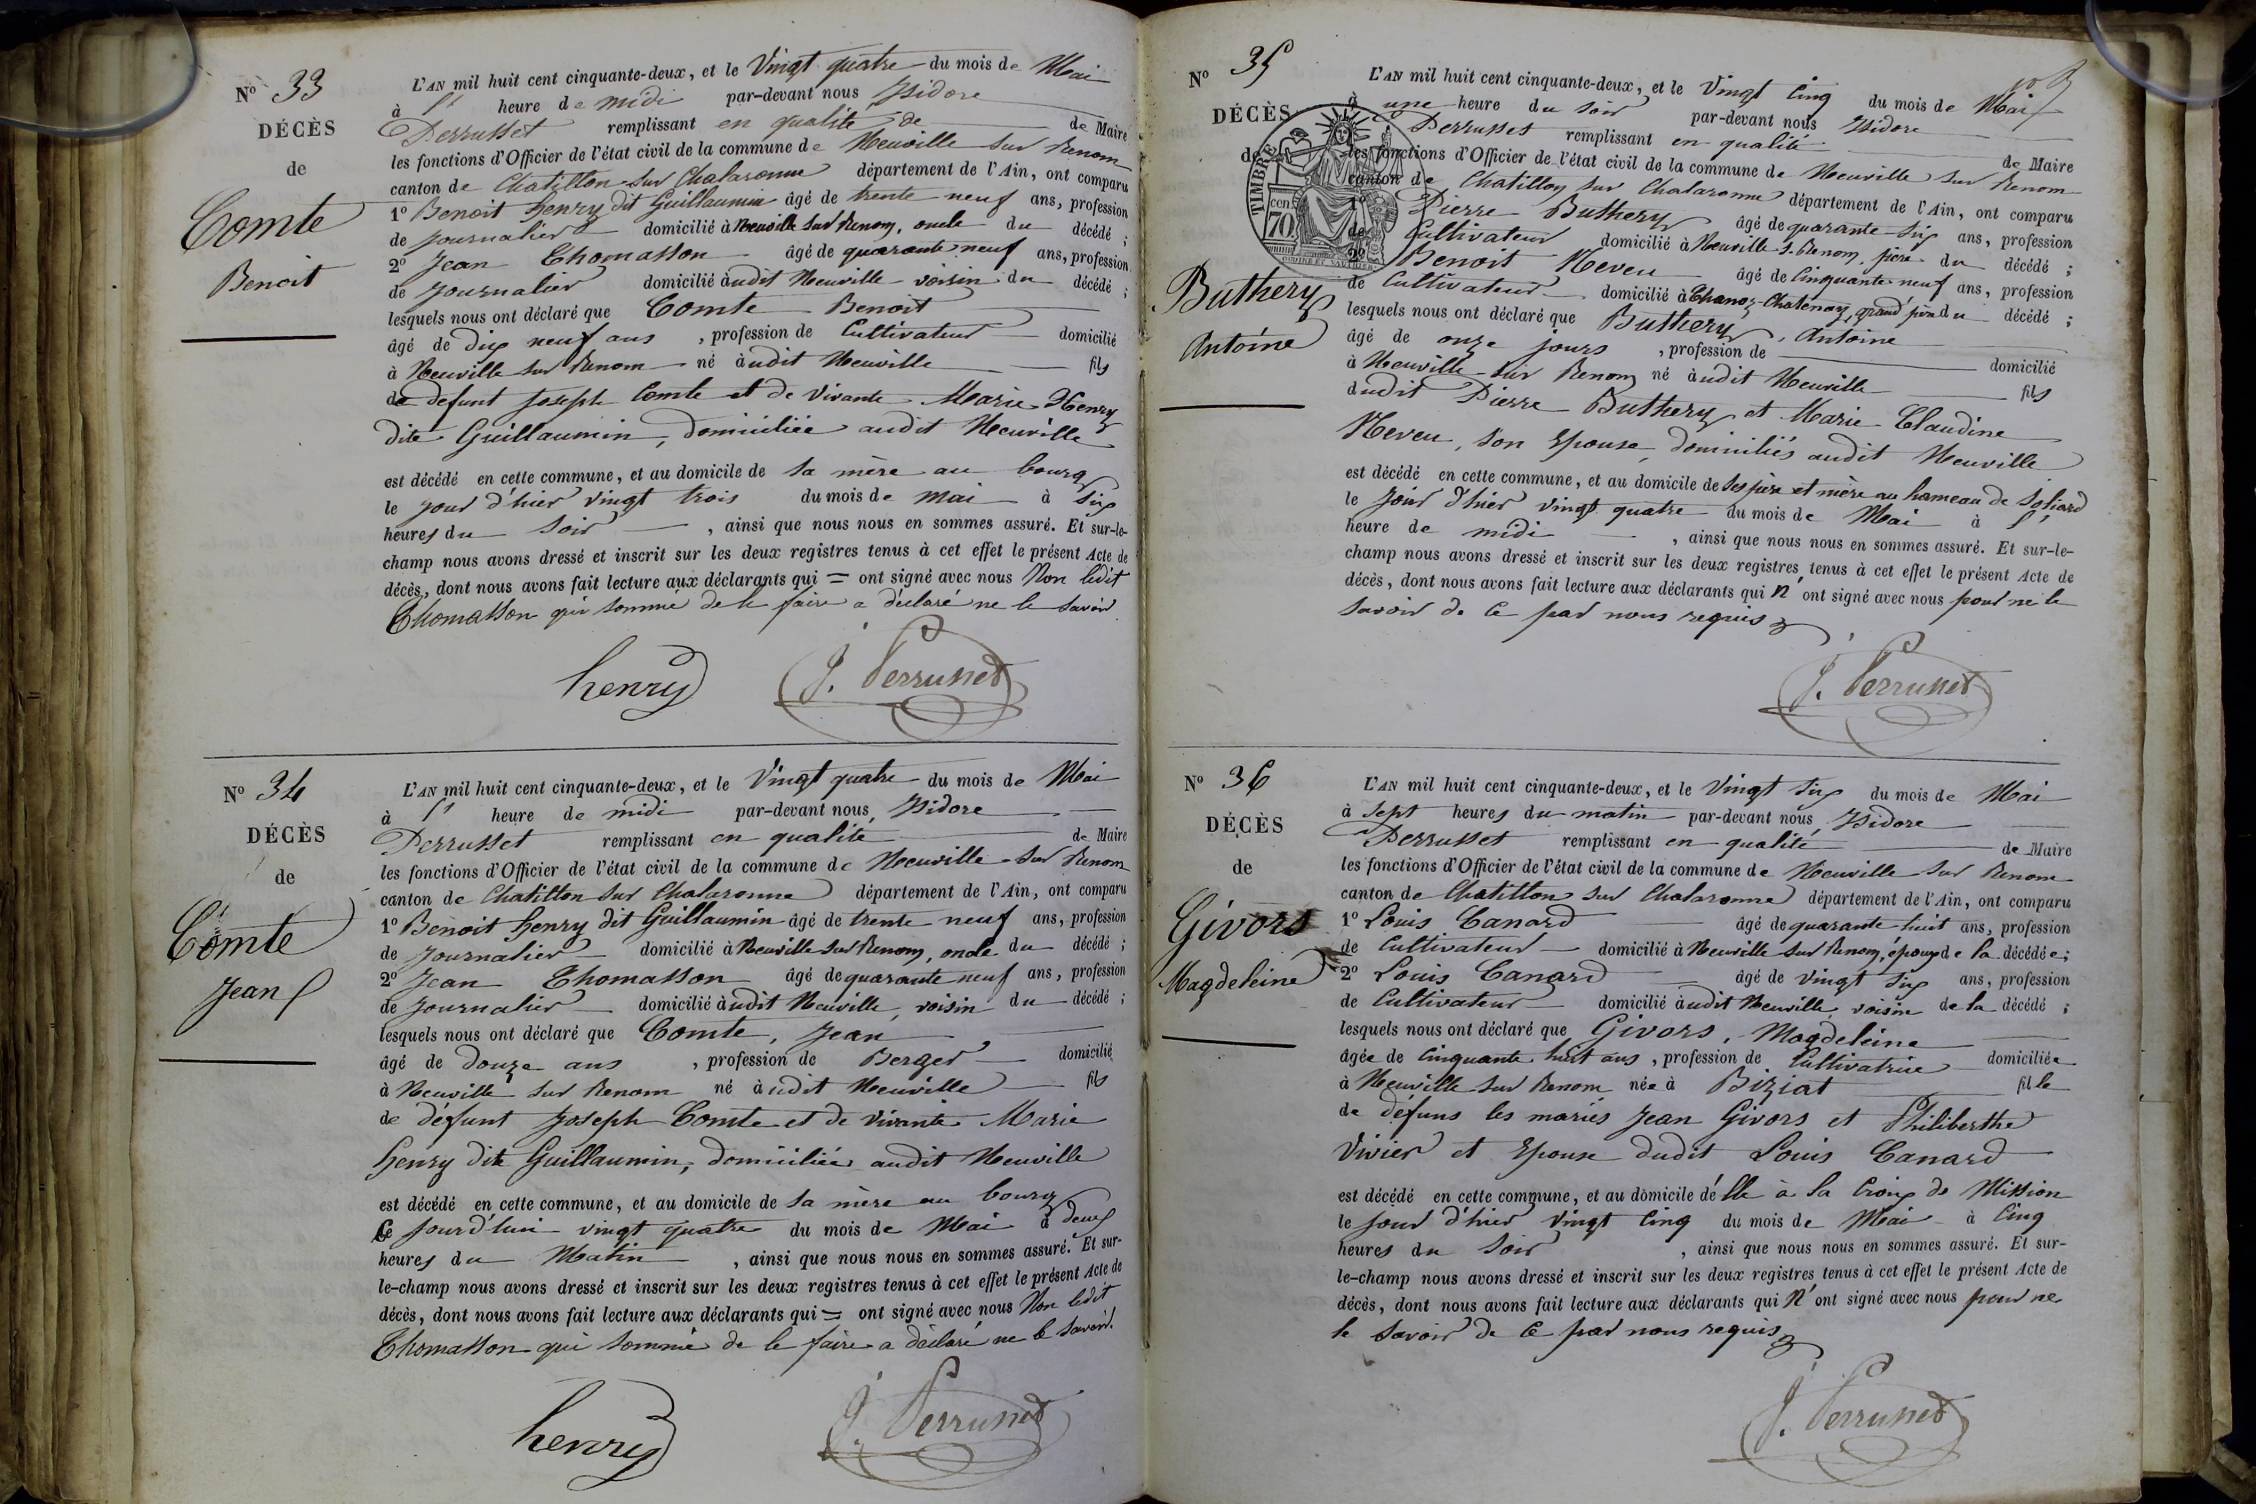 N° 33
DÉCÈS
de
Comte
Benoit
L'AN mil huit cent cinquante-deux, et le Vingt quatre du mois de Mai
à l' heure de midi par-devant nous Isidore
Perrusset remplissant en qualité de de Maire
les fonctions d'Officier de l'état civil de la commune de Neuville sur Renom
canton de Chatillon sur Chalaronne département de l'Ain, ont comparu
1° Benoit henry dit Guillaumin âgé de trente neuf ans, profession
de journalier domicilié à Neuville sur Renom, oncle du décédé ;
2° Jean Thomasson âgé de quarante neuf ans, profession
de journalier domicilié àudit Neuville voisin du décédé ;
lesquels nous ont déclaré que Comte Benoit
âgé de dix neuf ans , profession de Cultivateur domicilié
à Neuville sur Renom né àudit Neuville fils
de defunt Joseph Comte et de vivante Marie Henry
dite Guillaumin, domiciliée audit Neuville
est décédé en cette commune, et au domicile de sa mère au bourg
le jour d'hier vingt trois du mois de mai à six
heures du soir , ainsi que nous nous en sommes assuré. Et sur-le-
champ nous avons dressé et inscrit sur les deux registres tenus à cet effet le présent Acte de
décès, dont nous avons fait lecture aux déclarants qui = ont signé avec nous Non ledit
Thomasson qui sommé de le faire a déclaré ne le savoir
henry J. Perrusset
N° 34
DÉCÈS
de
Comte
Jean
L'AN mil huit cent cinquante-deux, et le Vingt quatre du mois de Mai
à l' heure de midi par-devant nous, Isidore
Perrusset remplissant en qualité de Maire
les fonctions d'Officier de l'état civil de la commune de Neuville sur Renom
canton de Chatillon sur Chalaronne département de l'Ain, ont comparu
1° Benoit henry dit Guillaumin âgé de trente neuf ans, profession
de journalier domicilié à Neuville sur Renom, oncle du décédé ;
2° Jean Thomasson âgé de quarante neuf ans, profession
de journalier domicilié àudit Neuville, voisin du décédé ;
lesquels nous ont déclaré que Comte, Jean
âgé de douze ans , profession de Berger domicilié
à Neuville sur Renom né àudit Neuville fils
de défunt Joseph Comte et de vivante Marie
henry dite Guillaumin, domiciliée audit Neuville
est décédé en cette commune, et au domicile de sa mère au bourg
Ce jourd'hui vingt quatre du mois de Mai à deux
heures du Matin , ainsi que nous nous en sommes assuré. Et sur-
le-champ nous avons dressé et inscrit sur les deux registres tenus à cet effet le présent Acte de
décès, dont nous avons fait lecture aux déclarants qui = ont signé avec nous Non ledit
Thomasson qui sommé de le faire a déclaré ne le savoir.
henry J. Perrusset
N° 35
DÉCÈS
de
TIMBRE
70 cen
Buthery
Antoine
L'AN mil huit cent cinquante-deux, et le Vingt Cinq du mois de Mai
à une heure du soir par-devant nous Isidore
Perrusset remplissant en qualité de Maire
les fonctions d'Officier de l'état civil de la commune de Neuville sur Renom
canton de Chatillon sur Chalaronne département de l'Ain, ont comparu
1° Pierre Buthery âgé de quarante six ans, profession
de Cultivateur domicilié à Neuville s. Renom, père du décédé ;
2° Benoit Neveu âgé de Cinquante neuf ans, profession
de Cultivateur domicilié à Chanoz-Chatenay, grand'père du décédé ;
lesquels nous ont déclaré que Buthery, Antoine
âgé de onze jours , profession de domicilié
à Neuville sur Renom né àudit Neuville fils
dudit Pierre Buthery et Marie Claudine
Neveu, son Epouse, domiciliés audit Neuville
est décédé en cette commune, et au domicile de ses père et mère au hameau de
le jour d'hier vingt quatre du mois de Mai à l'
heure de midi , ainsi que nous nous en sommes assuré. Et sur-le-
champ nous avons dressé et inscrit sur les deux registres tenus à cet effet le présent Acte de
décès, dont nous avons fait lecture aux déclarants qui n' ont signé avec nous pour ne le
savoir de ce par nous requis
J. Perrusset
N° 36
DÉCÈS
de
Givors
Magdeleine
L'AN mil huit cent cinquante-deux, et le Vingt six du mois de Mai
à sept heures du matin par-devant nous Isidore
Perrusset remplissant en qualité de Maire
les fonctions d'Officier de l'état civil de la commune de Neuville sur Renom
canton de Chatillon sur Chalaronne département de l'Ain, ont comparu
1° Louis Canard âgé de quarante huit ans, profession
de Cultivateur domicilié à Neuville sur Renom, époux de la décédée ;
2° Louis Canard âgé de vingt six ans, profession
de Cultivateur domicilié àudit Neuville, voisin de la décédé ;
lesquels nous ont déclaré que Givors, Magdeleine
âgée de Cinquante huit ans , profession de Cultivatrice domiciliée
à Neuville sur Renom née à Biziat fille
de défuns les mariés Jean Givors et Philiberthe
Vivier et Epouse dudit Louis Canard
est décédé en cette commune, et au domicile d'elle à la Croix de Mission
le jour d'hier vingt Cinq du mois de Mai à Cinq
heures du soir , ainsi que nous nous en sommes assuré. Et sur-
le-champ nous avons dressé et inscrit sur les deux registres tenus à cet effet le présent Acte de
décès, dont nous avons fait lecture aux déclarants qui N' ont signé avec nous pour ne
le savoir de ce par nous requis
J. Perrusset